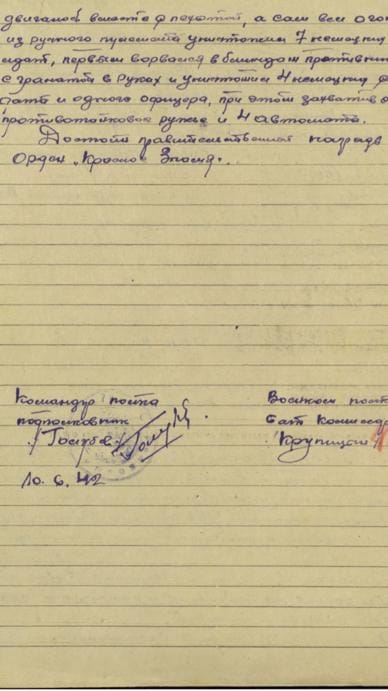 двигался вместе с пехотой, а сам вел ого
из ручного пулемета уничтожил 7 немецки
солдат, первым ворвался в блиндаж противни
с гранатой в руках и уничтожил 4 немецких
солдата и одного офицера, при этом захватив
противотанковое ружье и 4 автомата.
Достоин правительственной награды
Орден „Красной Звезды".
Командир полка
подполковник
/Голубев/
Военком пол
Бат. Комисса
/Крупицкий
10. 6. 42